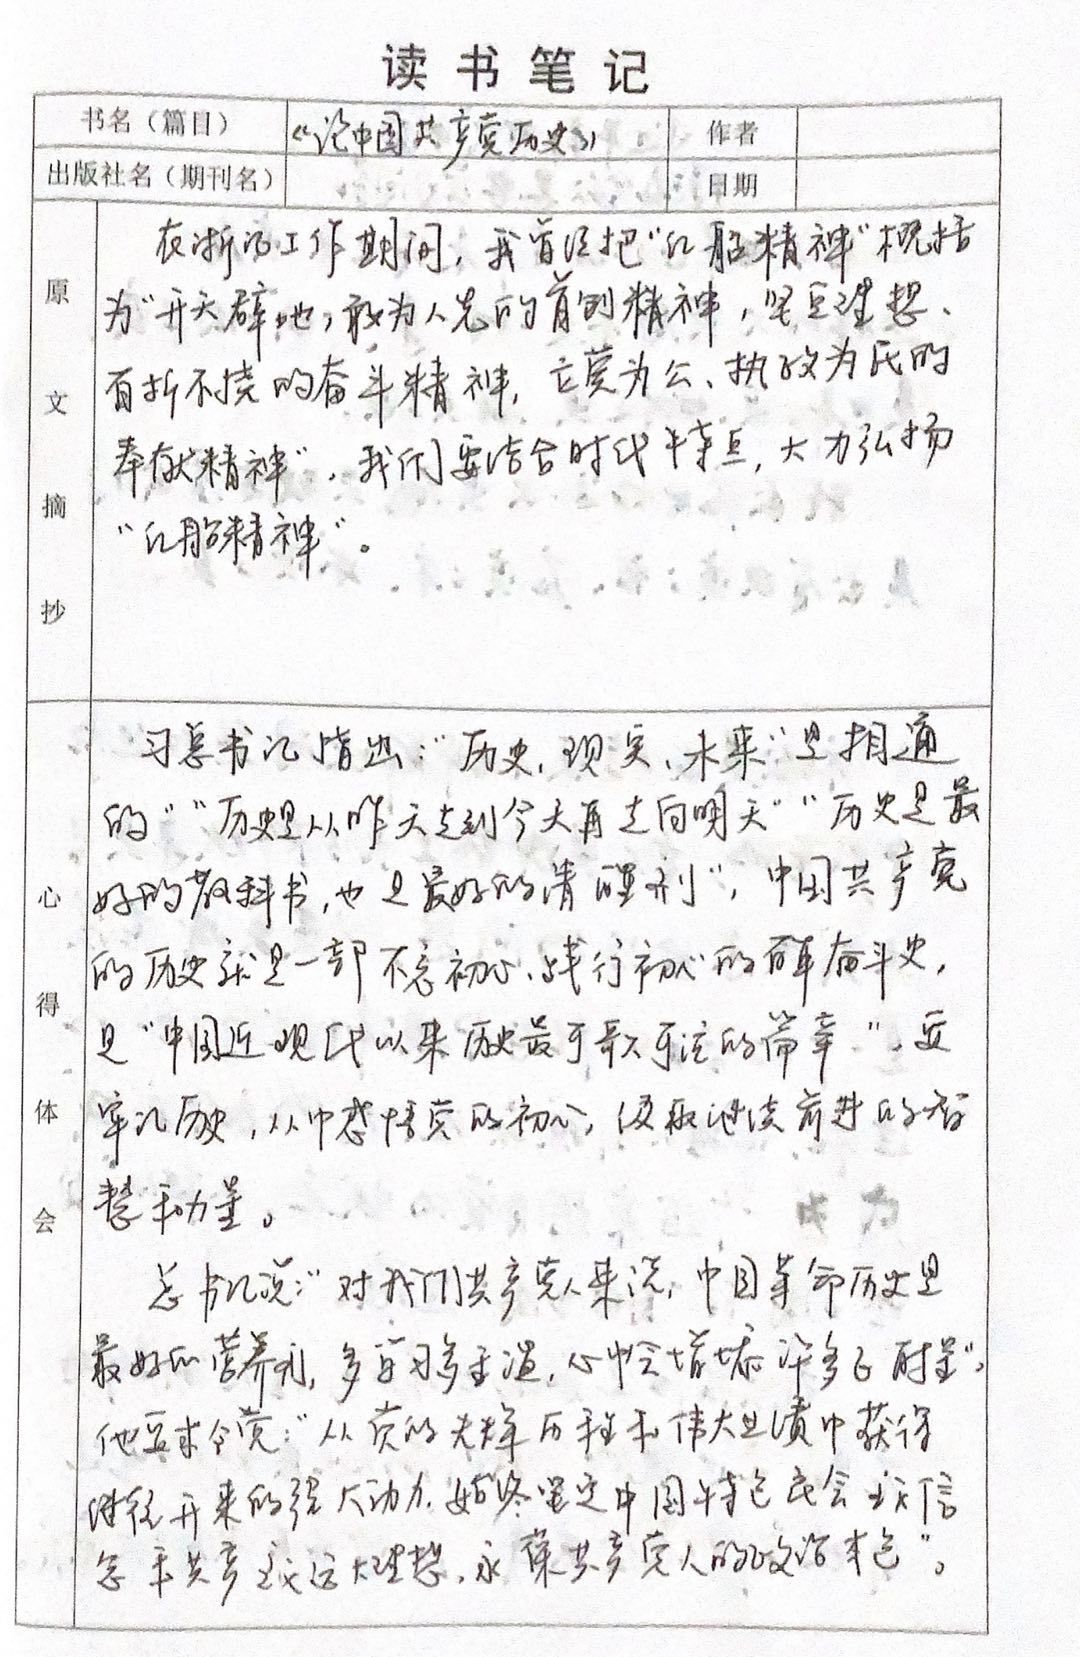 读书笔记
书名（篇目） 《论中国共产党历史》 作者
出版社名（期刊名） 日期
原文摘抄
在浙江工作期间，我曾经把“红船精神”概括
为“开天辟地，敢为人先的首创精神，坚定理想、
百折不挠的奋斗精神，立党为公、执政为民的
奉献精神”，我们要结合时代特点，大力弘扬
“红船精神”。
心得体会
习总书记指出：“历史，现实，未来”是相通
的”“历史是从昨天走到今天再走向明天”“历史是最
好的教科书，也是最好的清醒剂”，中国共产党
的历史就是一部不忘初心、践行初心的百年奋斗史，
是“中国近现代以来历史最可歌可泣的篇章”，要
牢记历史，从中感悟党的初心，汲取继续前进的智
慧和力量。
总书记说：“对我们共产党人来说，中国革命历史是
最好的营养剂，多学习多重温，心中会增添许多正能量”，
他要求全党：“从党的光辉历程和伟大业绩中获得
继往开来的强大动力，始终坚定中国特色社会主义信
念和共产主义远大理想，永葆共产党人的政治本色”。